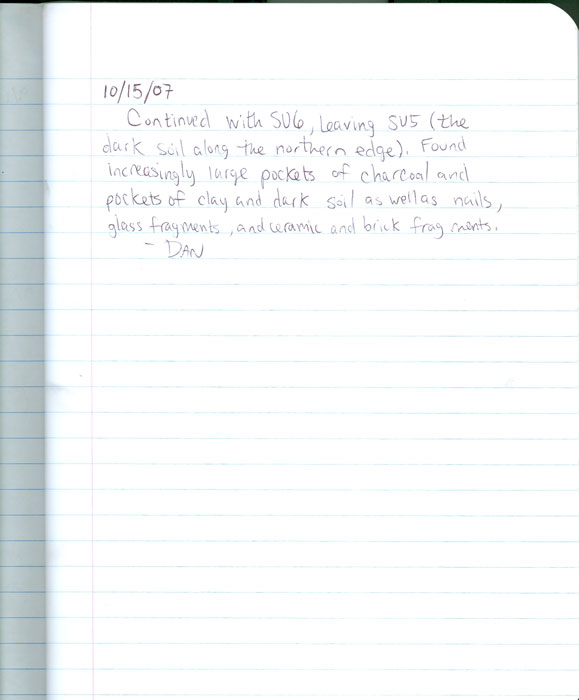 10/15/07
Continued with SU6, Leaving SU5 (the
dark soil along the northern edge). Found
increasingly large pockets of charcoal and
pockets of clay and dark soil as well as nails,
glass fragments, and ceramic and brick fragments.
- DAN